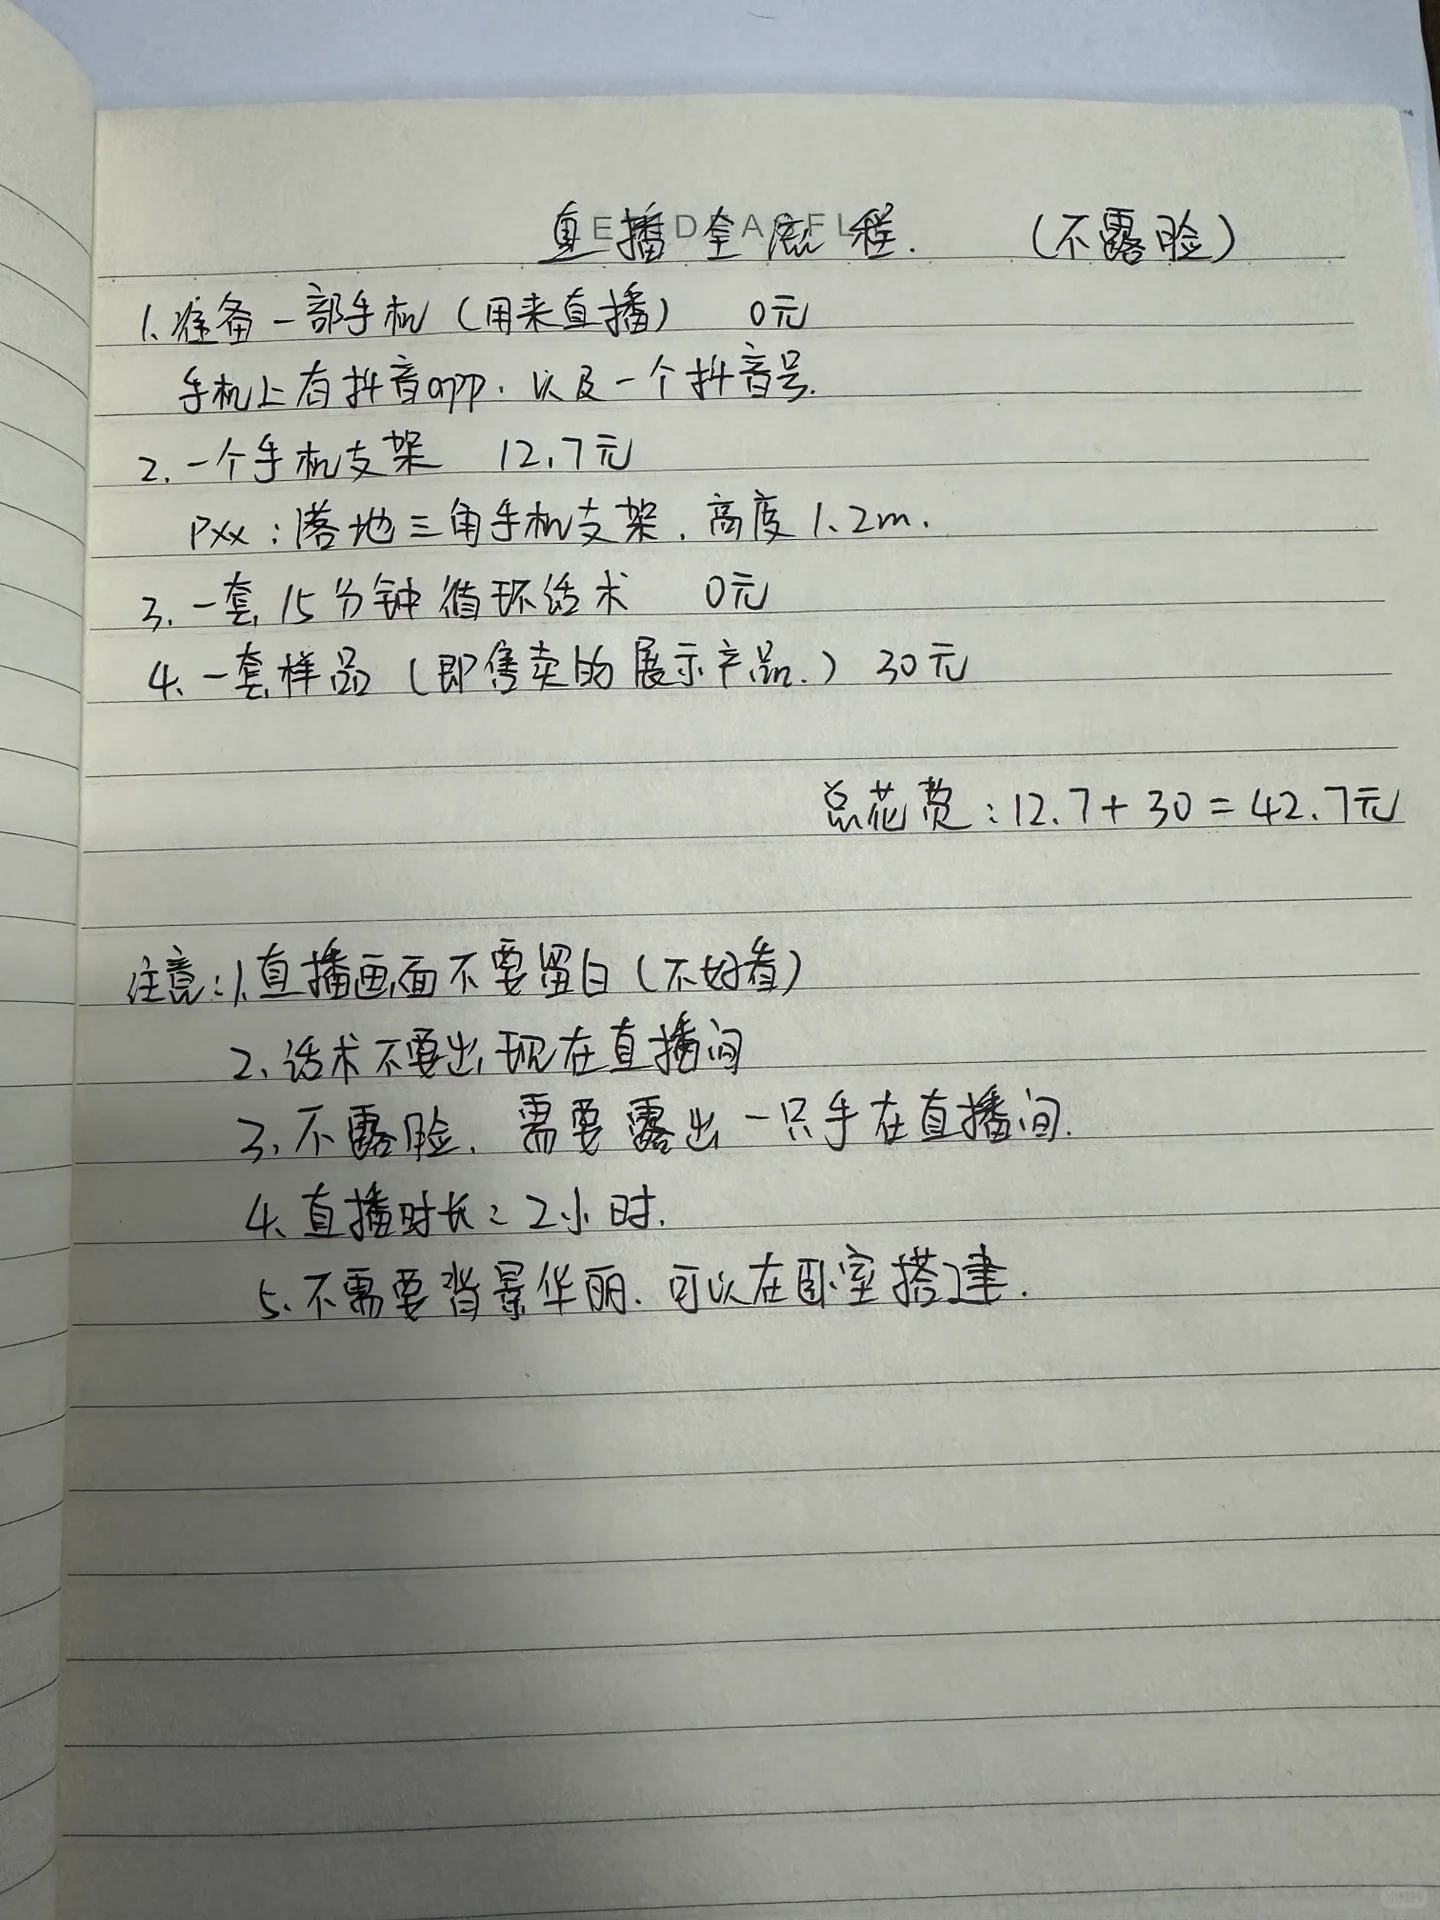 直播全流程. (不露脸)
1、准备一部手机(用来直播) 0元
手机上有抖音app. 以及一个抖音号.
2. 一个手机支架 12.7元
Pxx:落地三角手机支架. 高度1.2m.
3. 一套15分钟循环话术 0元
4. 一套样品(即售卖的展示产品.) 30元
总花费:12.7+30=42.7元
注意:1.直播画面不要留白(不好看)
2、话术不要出现在直播间
3、不露脸. 需要露出一只手在直播间.
4、直播时长:2小时.
5、不需要背景华丽. 可以在卧室搭建.